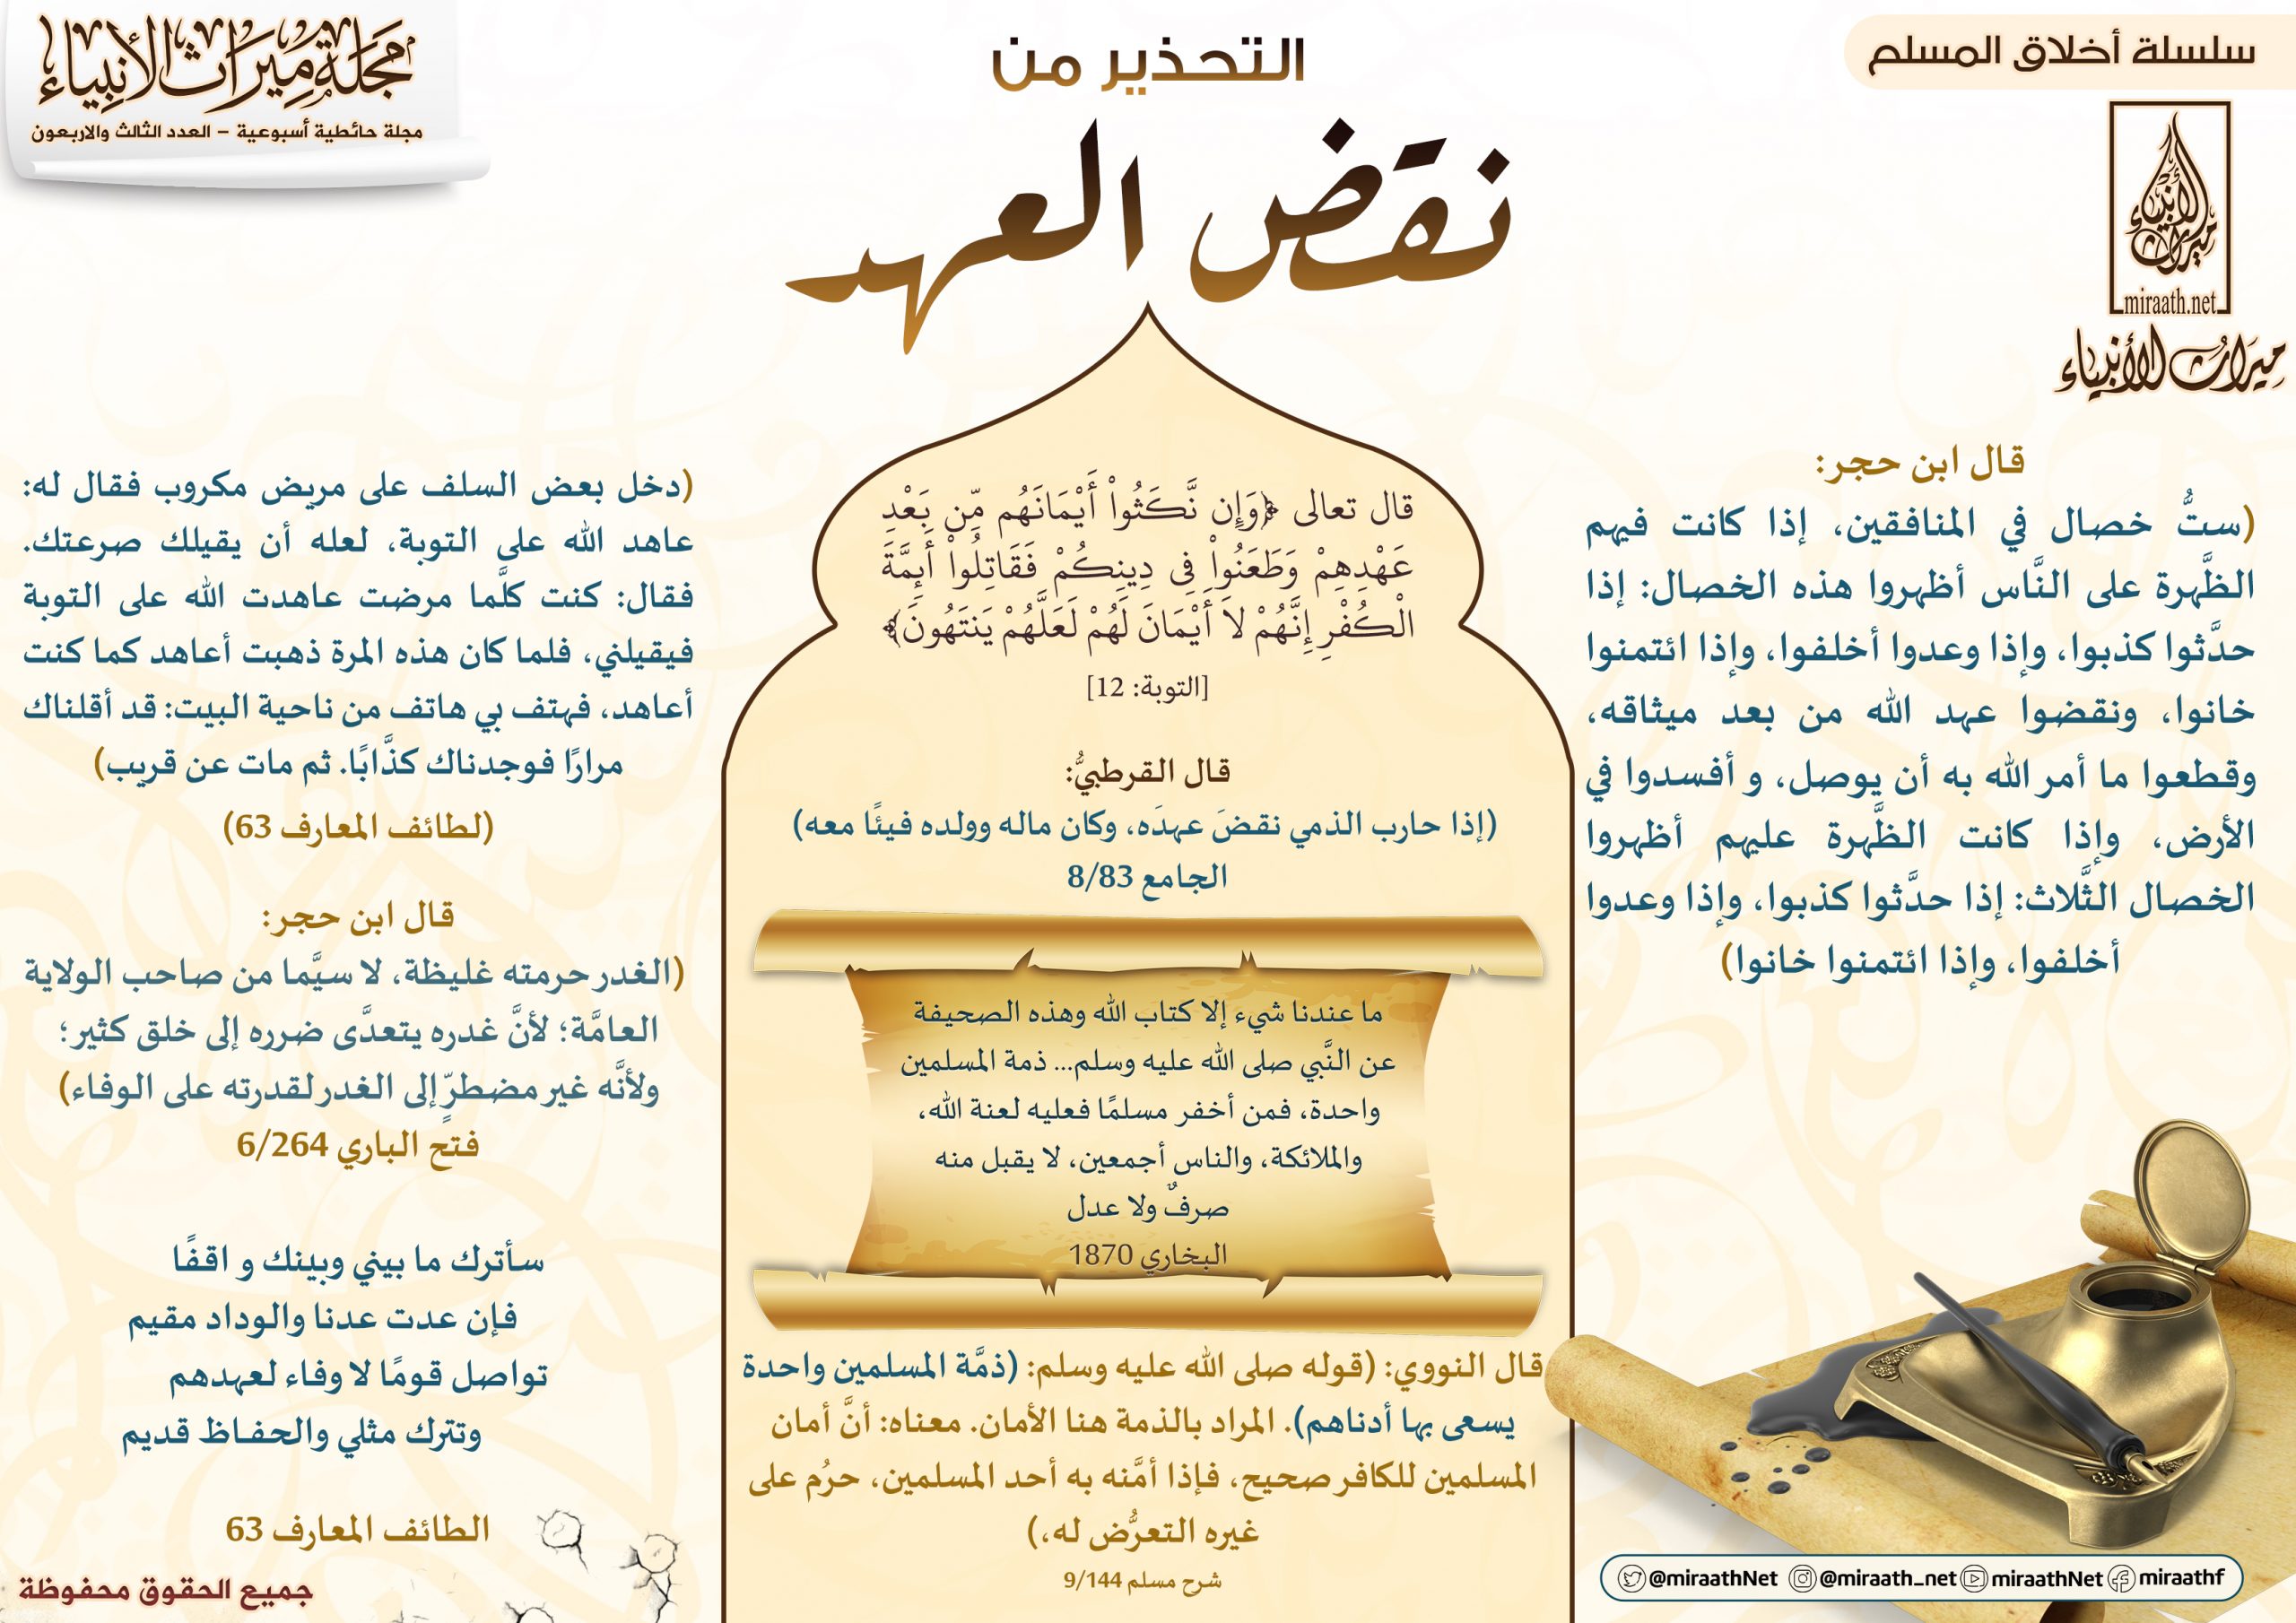 سلسلة أخلاق المسلم
ميراث الأنبياء
miraath.net
ميراث الأنبياء
التحذير من
نقض العهد
مجلة ميراث الأنبياء
مجلة حائطية أسبوعية – العدد الثالث والاربعون
قال ابن حجر:
(ستُّ خصال في المنافقين، إذا كانت فيهم
الظَّهرة على النَّاس أظهروا هذه الخصال: إذا
حدَّثوا كذبوا، وإذا وعدوا أخلفوا، وإذا ائتمنوا
خانوا، ونقضوا عهد الله من بعد ميثاقه،
وقطعوا ما أمر الله به أن يوصل، و أفسدوا في
الأرض، وإذا كانت الظَّهرة عليهم أظهروا
الخصال الثَّلاث: إذا حدَّثوا كذبوا، وإذا وعدوا
أخلفوا، وإذا ائتمنوا خانوا)
@miraathNet @miraath_net miraathNet miraathf
قال تعالى ﴿وَإِن نَّكَثُواْ أَيْمَانَهُم مِّن بَعْدِ
عَهْدِهِمْ وَطَعَنُواْ فِى دِينِكُمْ فَقَاتِلُواْ أَئِمَّةَ
الْكُفْرِ إِنَّهُمْ لاَ أَيْمَانَ لَهُمْ لَعَلَّهُمْ يَنتَهُونَ﴾
[التوبة: 12]
قال القرطبيُّ:
(إذا حارب الذمي نقضَ عهدَه، وكان ماله وولده فيئًا معه)
الجامع 8/83
ما عندنا شيء إلا كتاب الله وهذه الصحيفة
عن النَّبي صلى الله عليه وسلم... ذمة المسلمين
واحدة، فمن أخفر مسلمًا فعليه لعنة الله،
والملائكة، والناس أجمعين، لا يقبل منه
صرفٌ ولا عدل
البخاري 1870
قال النووي: (قوله صلى الله عليه وسلم: (ذمَّة المسلمين واحدة
يسعى بها أدناهم). المراد بالذمة هنا الأمان. معناه: أنَّ أمان
المسلمين للكافر صحيح، فإذا أمَّنه به أحد المسلمين، حرُم على
غيره التعرُّض له،)
شرح مسلم 9/144
(دخل بعض السلف على مريض مكروب فقال له:
عاهد الله على التوبة، لعله أن يقيلك صرعتك.
فقال: كنت كلَّما مرضت عاهدت الله على التوبة
فيقيلني، فلما كان هذه المرة ذهبت أعاهد كما كنت
أعاهد، فهتف بي هاتف من ناحية البيت: قد أقلناك
مرارًا فوجدناك كذَّابًا. ثم مات عن قريب)
(لطائف المعارف 63)
قال ابن حجر:
(الغدر حرمته غليظة، لا سيَّما من صاحب الولاية
العامَّة؛ لأنَّ غدره يتعدَّى ضرره إلى خلق كثير؛
ولأنَّه غير مضطرٍّ إلى الغدر لقدرته على الوفاء)
فتح الباري 6/264
سأترك ما بيني وبينك و اقفًا
فإن عدت عدنا والوداد مقيم
تواصل قومًا لا وفاء لعهدهم
وتترك مثلي والحفاظ قديم
الطائف المعارف 63
جميع الحقوق محفوظة